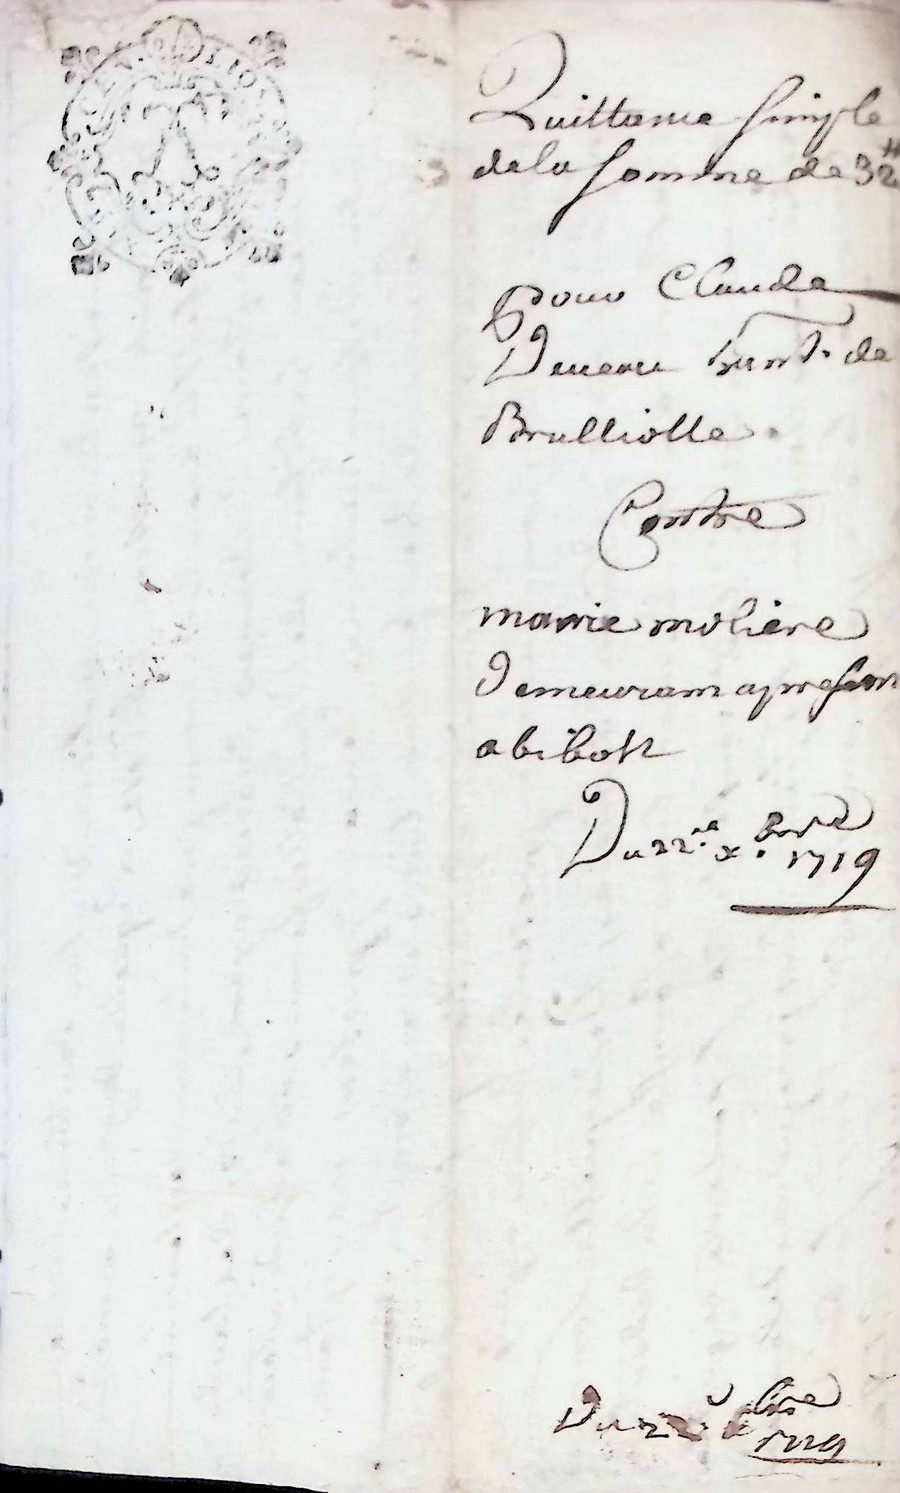 Quittance simple
de la somme de 32#
pour Claude
habt. de
Brulliolle.
Contre
marie moliere
demeurant a presant
a bibost
Du 22me xbre 1719
Du 22